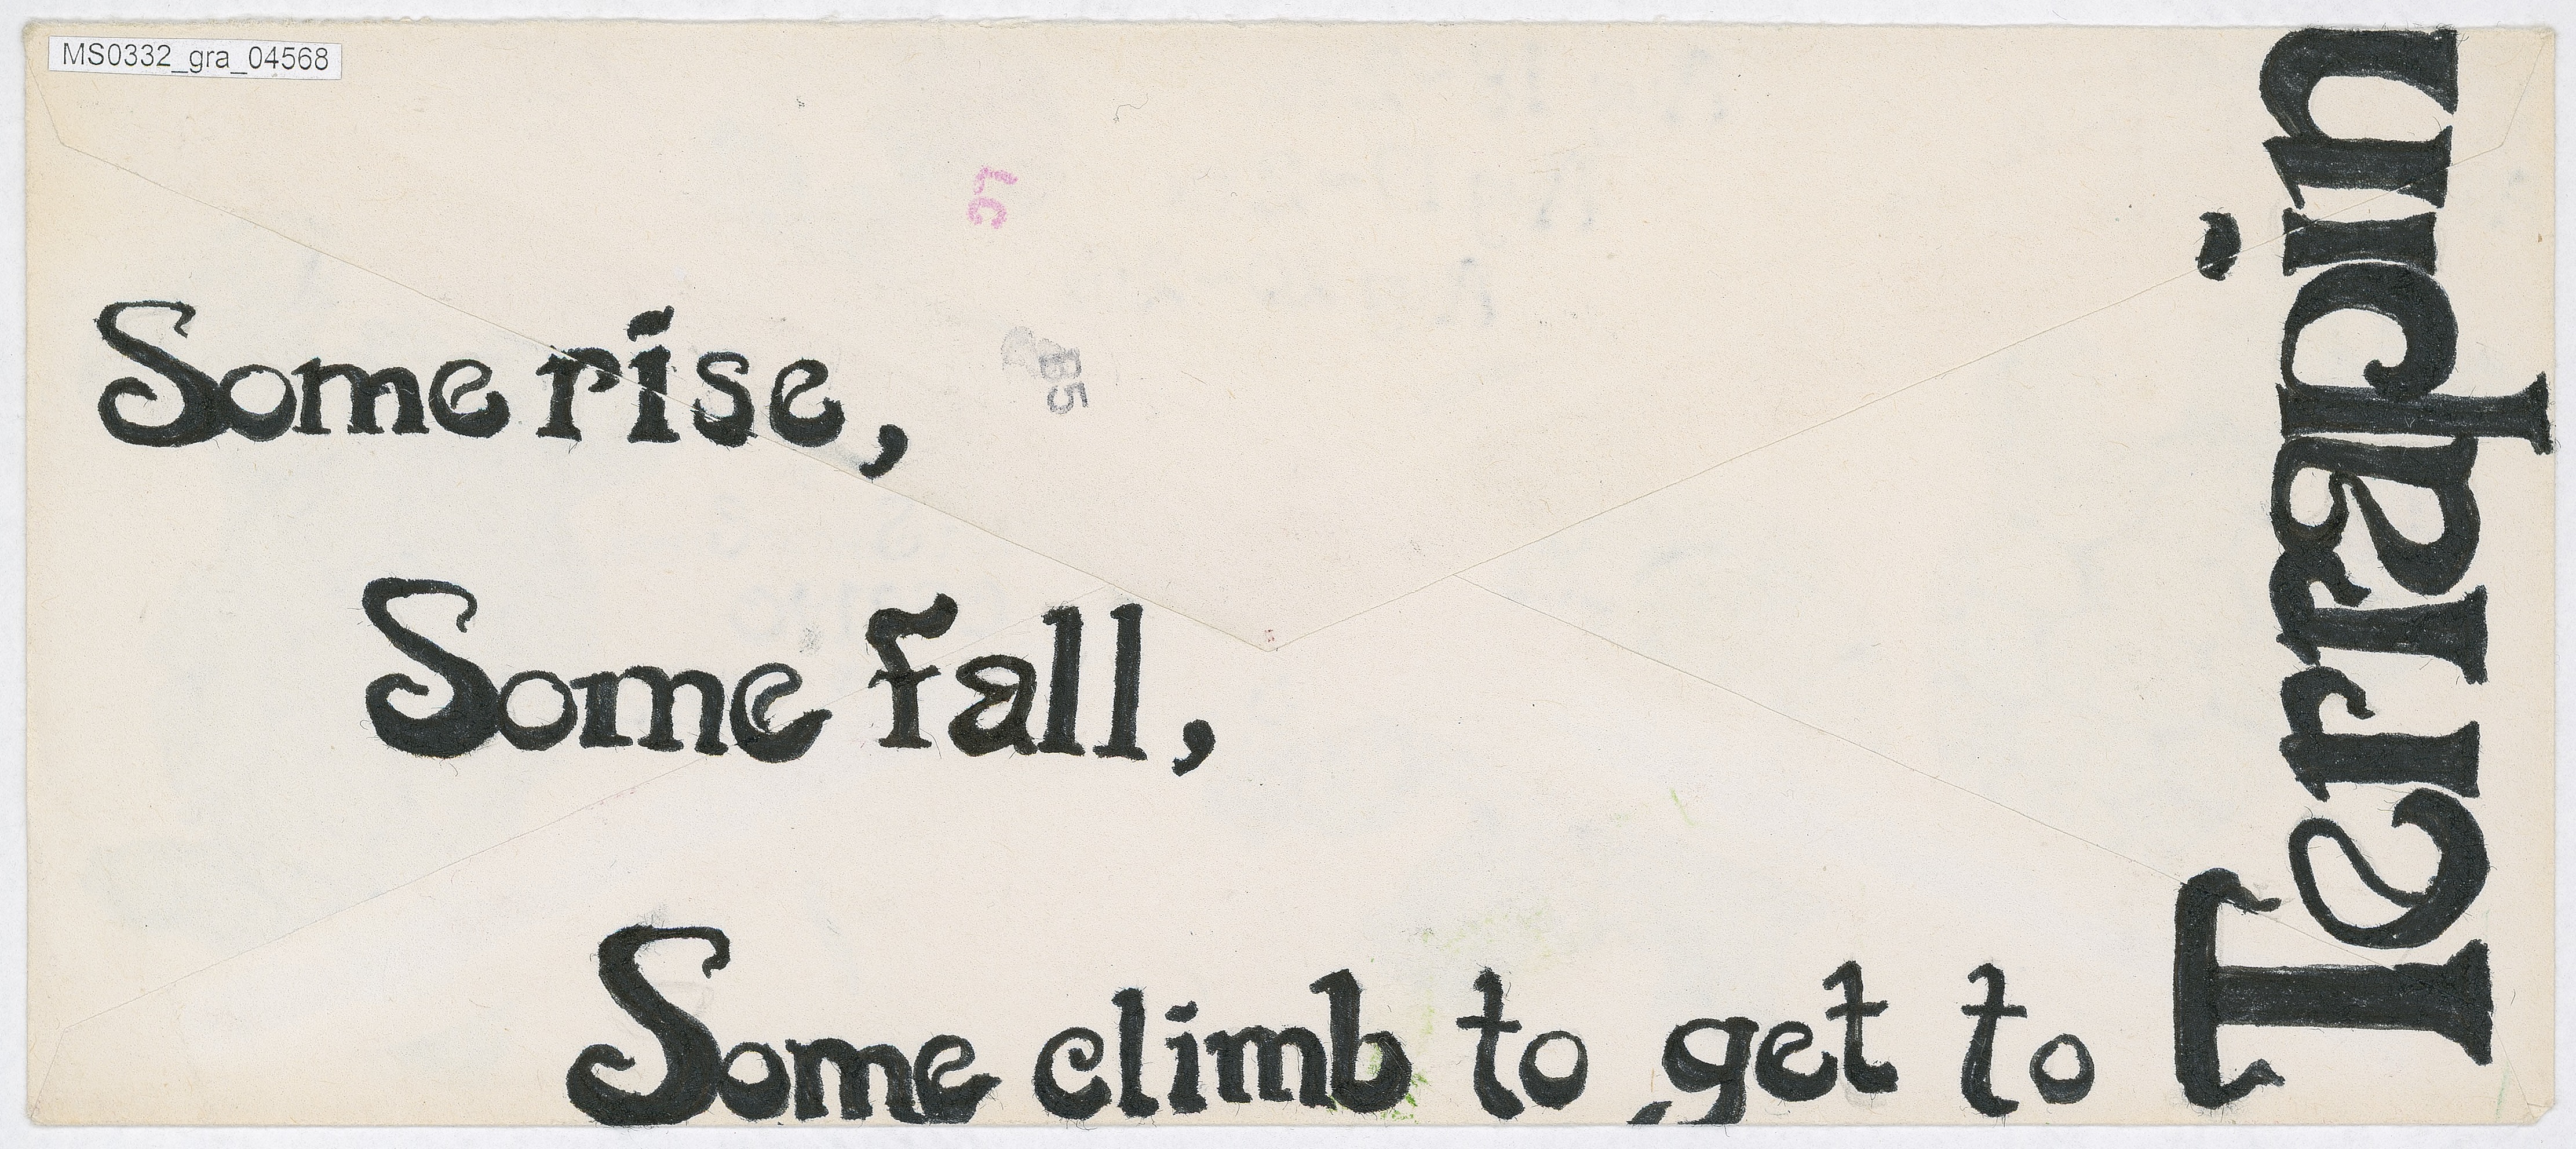 MS0332_gra_04568
LC
85
Some rise,
Some fall,
Some climb to get to
Terrapin